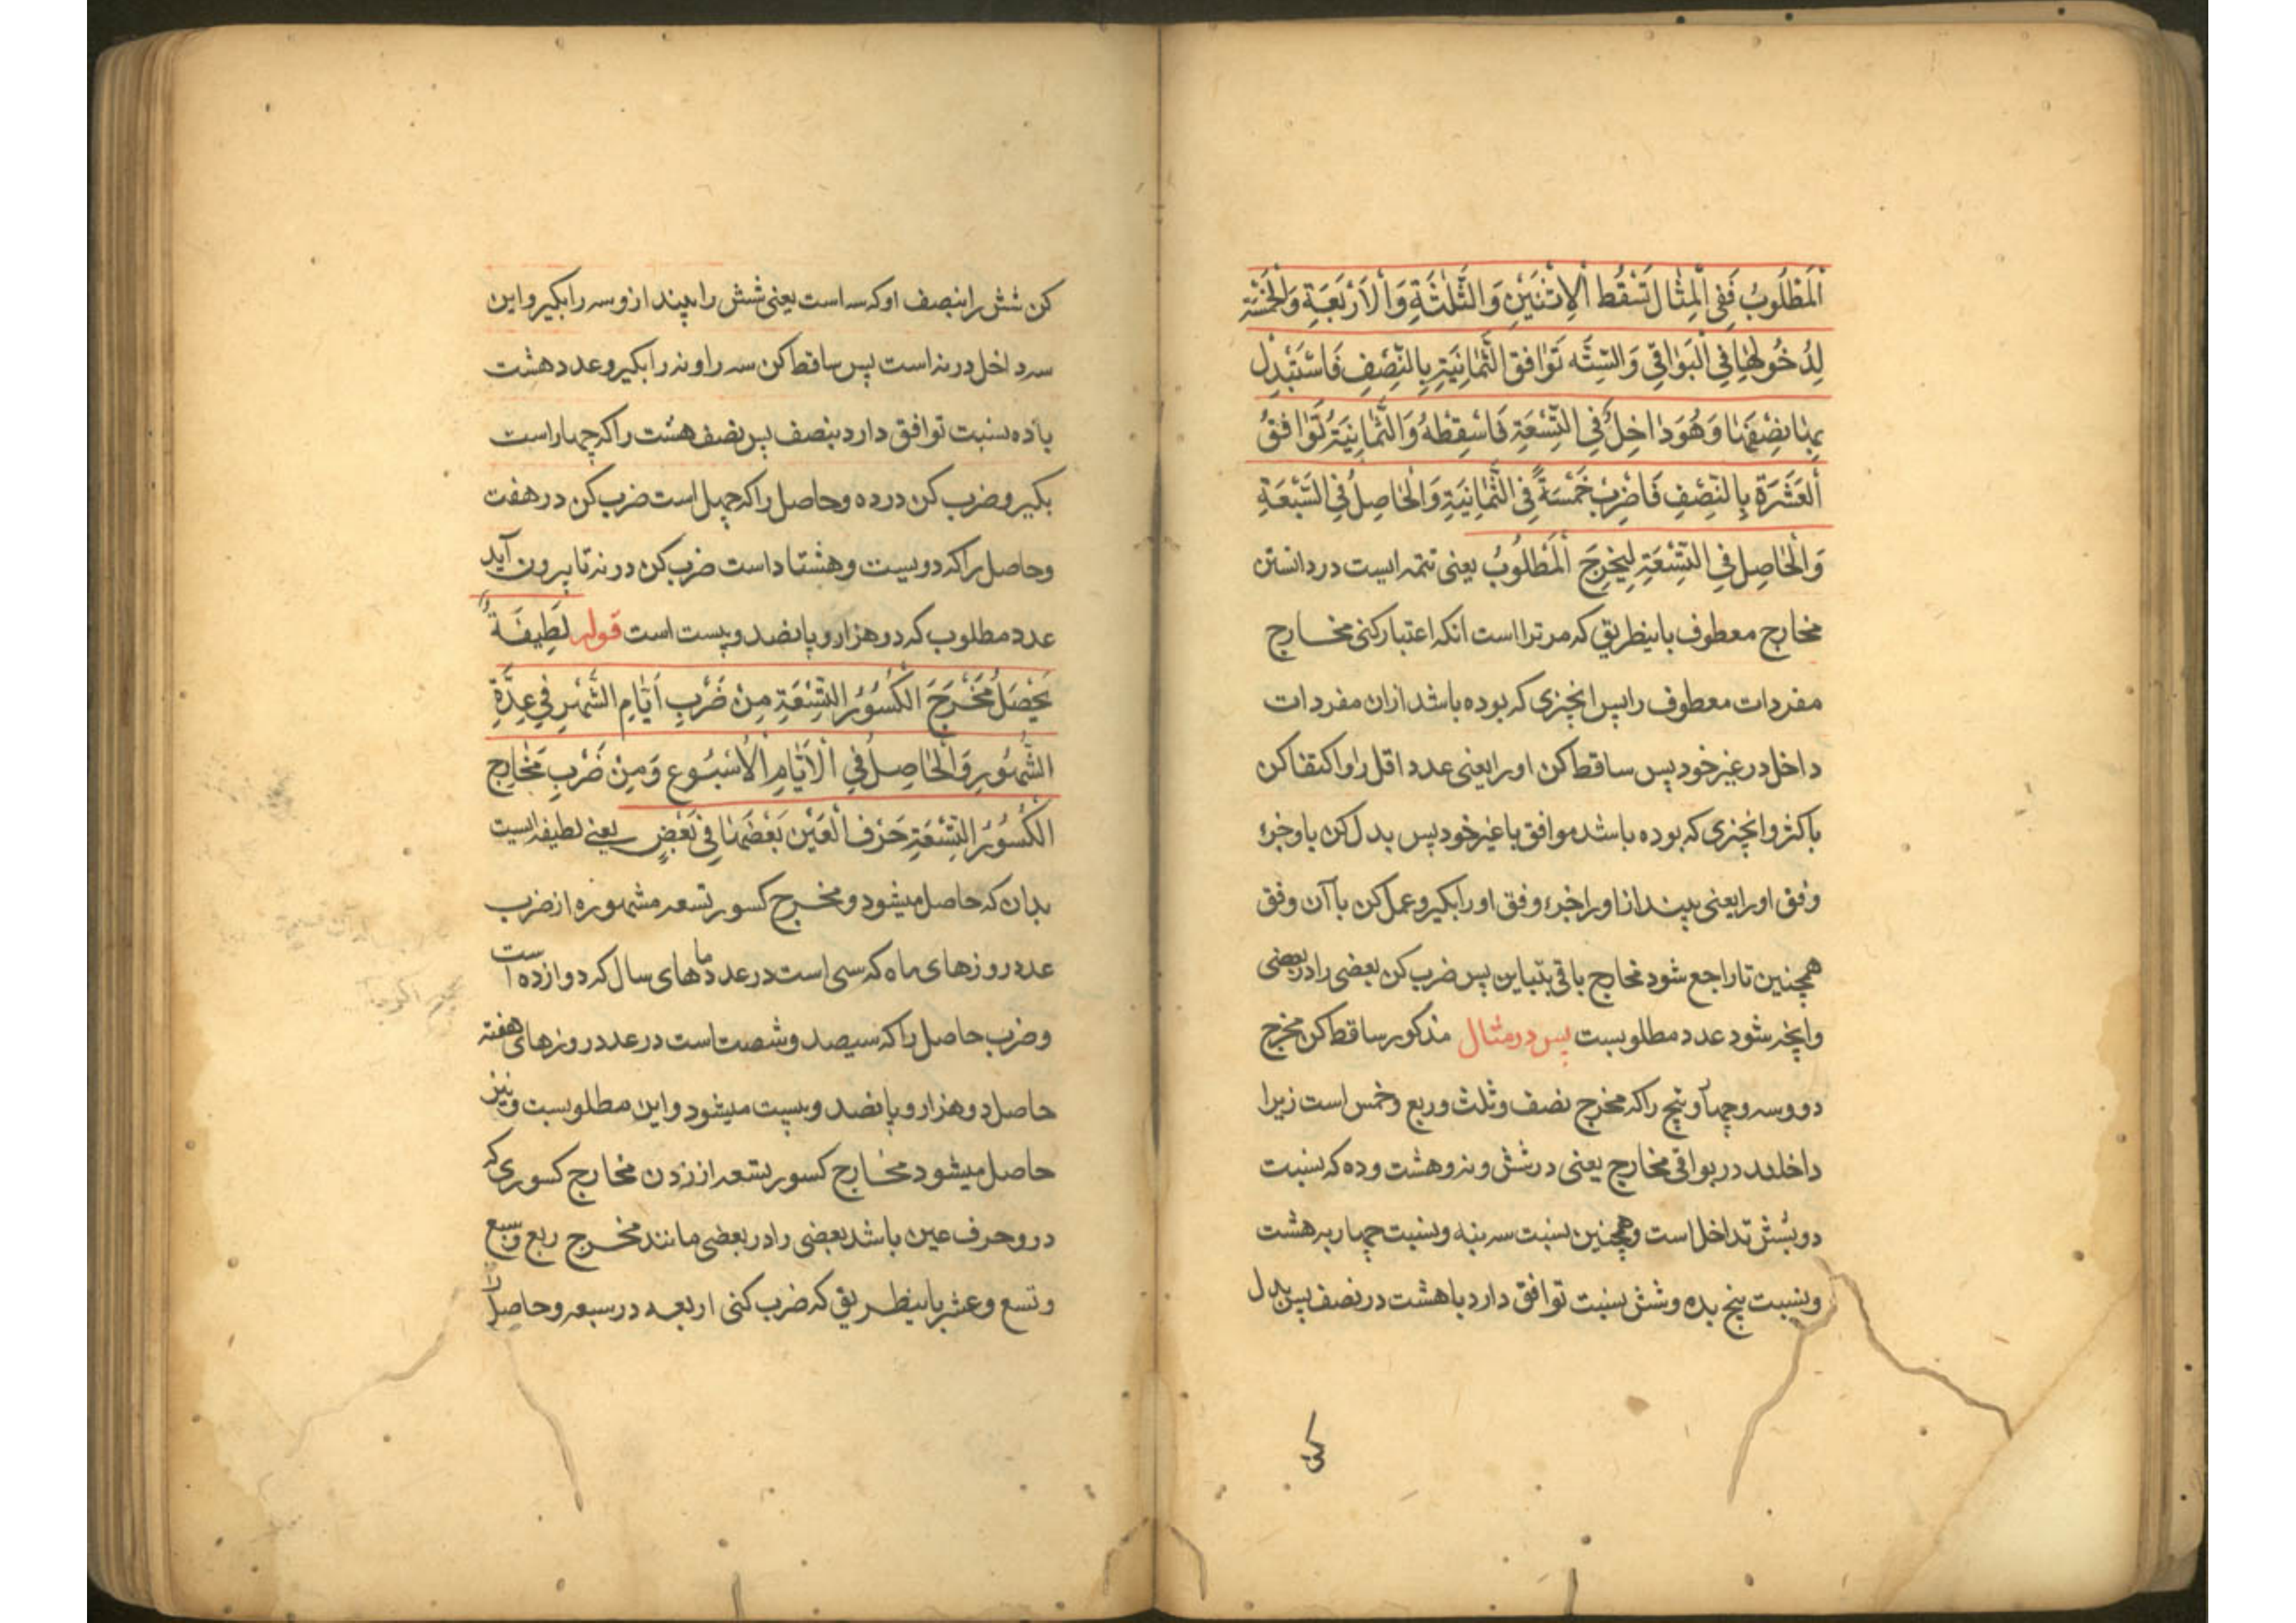 اَلْمَطْلُوبُ فَفِی الْمِثٰالِ تَسْقُطُ الْاِثْنَیْنِ وَالثَّلٰثَةِ وَالْاَرْبَعَةِ وَالْخَمْسَةِ
لِدُخُولِهٰا فِی الْبَوٰاقِی وَالسِّتَّه تَوٰافِقُ الثَّمٰانِیَةِ بِالنِّصْفِ فَاسْتَبْدِلْ
بِهٰا نِصْفَهٰا وَهُوَ دٰاخِلٌ فِی التِّسْعَةِ فَاَسْقِطْهُ وَالثَّمٰانِیَةُ تُوٰافِقُ
اَلْعَشَرَةِ بِالنِّصْفِ فَاضْرِبْ خَمْسَةً فِی الثَّمٰانِیَةِ وَالْحٰاصِلُ فِی السَّبْعَةِ
وَالْحٰاصِلِ فِی التِّسْعَةِ لِیَخْرِجَ اَلْمَطْلُوبُ یعنی تتمه ایست در دانستن
مخارج معطوف باینطریق که مر ترا است انکه اعتبار کنی مخارج
مفردات معطوف را پس انچیزی که بوده باشد ازان مفردات
داخل در غیر خود پس ساقط کن اورا یعنی عدد اقل را و اکتفا کن
باکثر وانچیزی که بوده باشد موافق با غیر خود پس بدل کن باو جزء
وفق اورا یعنی بینداز اورا جزء وفق اورا بکیر و عمل کن باآن وفق
همچنین تا راجع شود مخارج باقی بتباین پس ضرب کن بعضی را در بعضی
وانچه شود عدد مطلوبست پس در مثال مذکور ساقط کن مخرج
دو وسه وچهار وپنج را که مخرج نصف وثلث وربع وخمس است زیرا
داخلند در بواقی مخارج یعنی در شش ونه وهشت وده که نسبت
دو بشش تداخل است وهمچنین نسبت سه بنه ونسبت چهار به هشت
ونسبت پنج بده وشش نسبت توافق دارد با هشت در نصف پس بدل
کن شش را بنصف او که سه است یعنی شش را بیندازو سه را بکیر واین
سه داخل در نه است پس ساقط کن سه را ونه را بکیر وعدد هشت
با ده نسبت توافق دارد بنصف پس نصف هشت را که چهار است
بکیر وضرب کن در ده وحاصل را که چهل است ضرب کن در هفت
وحاصل را که دویست وهشتاد است ضرب کن در نه تا بیرون آید
عدد مطلوب که دو هزار و پانصد وبیست است قوله لَطِیفَةٌ
یَحْصَلُ مَخْرَجَ الْکُسُوُرِ التِّسْعَةِ مِنْ ضَرْبِ اَیّٰامِ الشَّهْرِ فِی عِدَّةِ
الشُّهُورِ وَالْحٰاصِلُ فِی الْاَیّٰامِ الْاُسْبُوع وَمِنْ ضَرْبِ مَخٰارِج
الْکُسُوُرِ التِّسْعَةِ حَرْفُ الْعَیْنِ بَعْضَهٰا فِی بَعْضٍ یعنی لطیفه ایست
بدان که حاصل میشود ومخرج کسور تسعه مشهوره از ضرب
عدد روزهای ماه که سی است در عدد ماههای سال که دوازده است
وضرب حاصل را که سیصد وشصت است در عدد روزهای هفته
حاصل دو هزار و پانصد وبیست میشود واین مطلوبست ونیز
حاصل میشود مخارج کسور تسعه از زدن مخارج کسوری که
در و حرف عین باشد بعضی را در بعضی مانند مخرج ربع وسبع
وتسع وعشر باینطریق که ضرب کنی اربعه در سبعه وحاصل را
کن